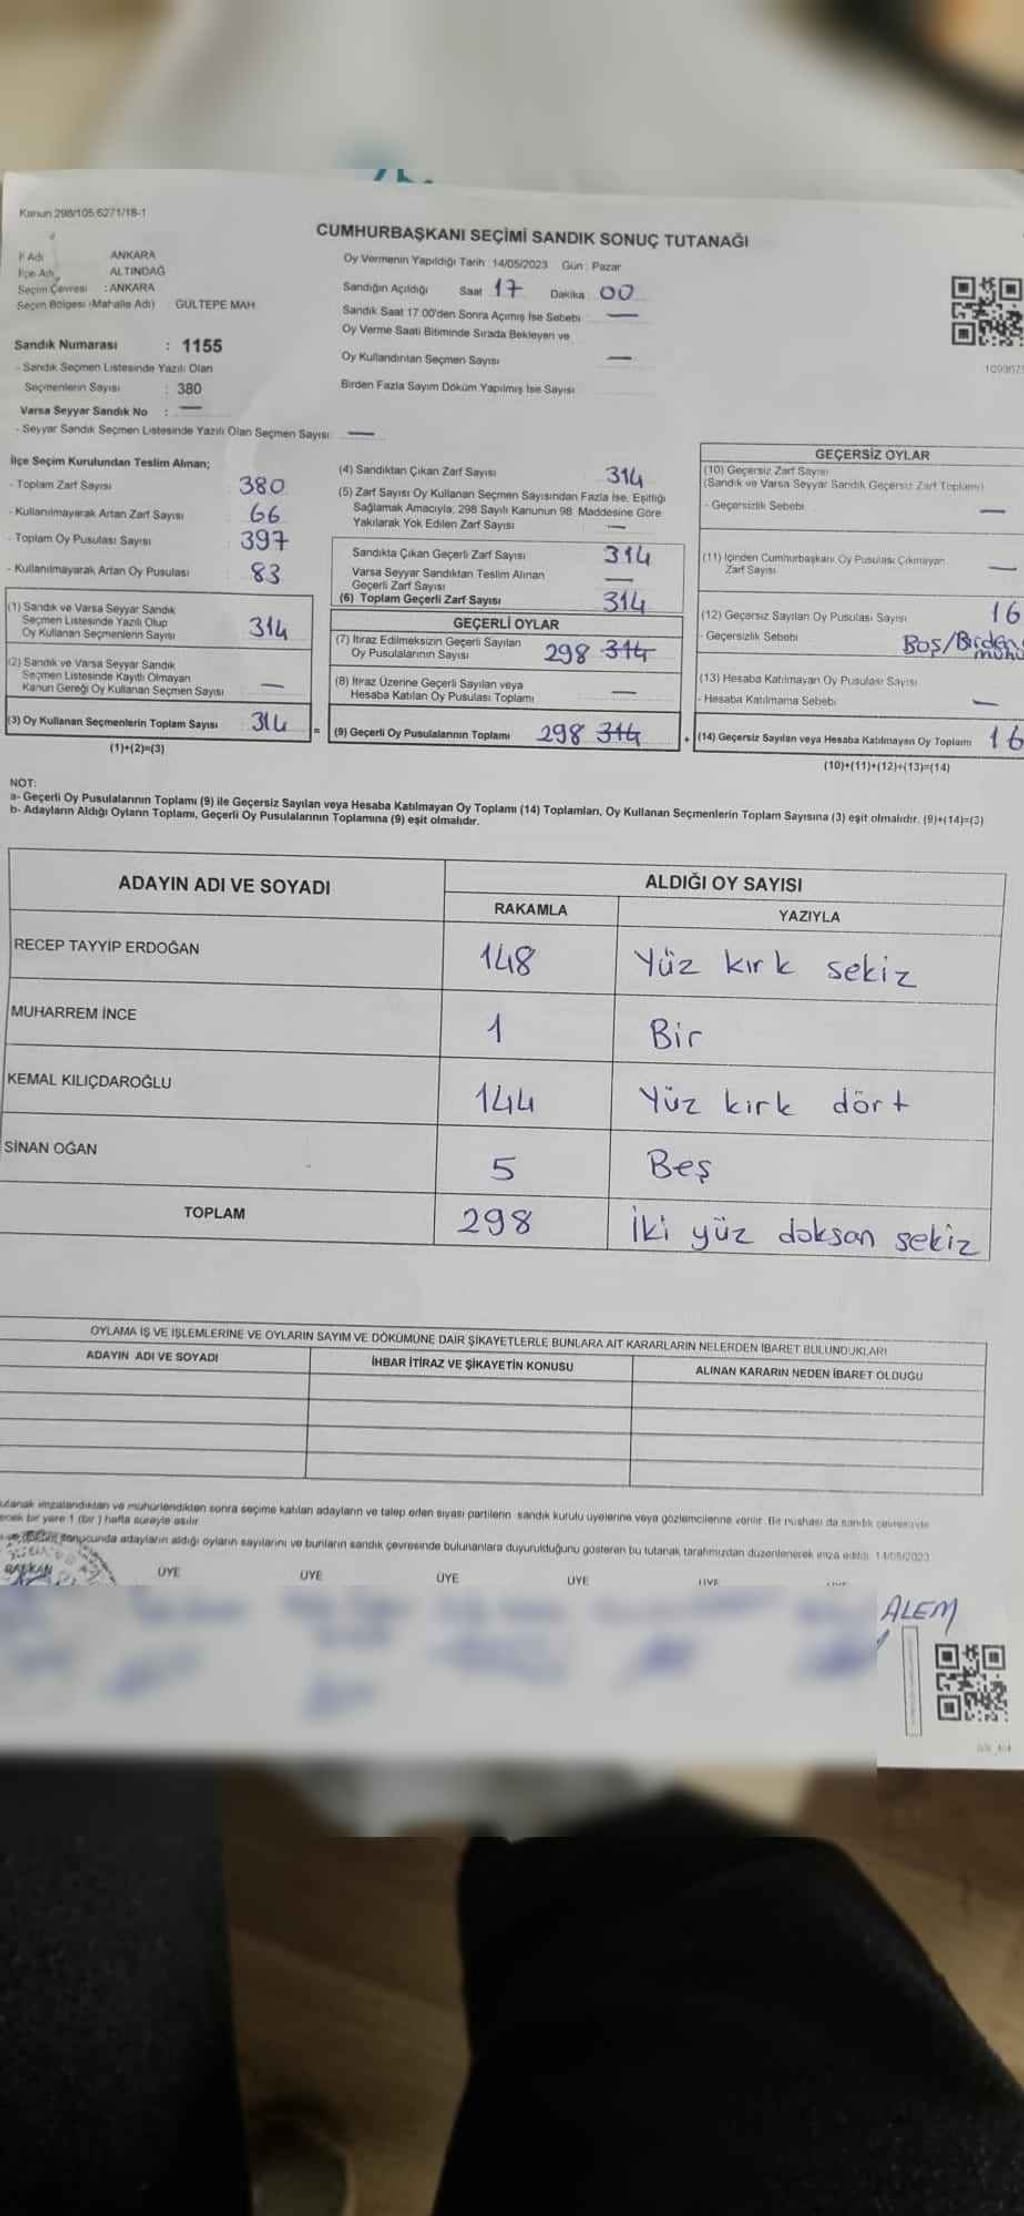 Kanun 298/105,6271/18-1
CUMHURBAŞKANI SEÇİMİ SANDIK SONUÇ TUTANAĞI
İl Adı ANKARA
İlçe Adı ALTINDAĞ
Seçim Çevresi : ANKARA
Seçim Bölgesi (Mahalle Adı) GÜLTEPE MAH.
Sandık Numarası : 1155
- Sandık Seçmen Listesinde Yazılı Olan
Seçmenlerin Sayısı : 380
Varsa Seyyar Sandık No : —
- Seyyar Sandık Seçmen Listesinde Yazılı Olan Seçmen Sayısı —
Oy Vermenin Yapıldığı Tarih : 14/05/2023 Gün : Pazar
Sandığın Açıldığı Saat 17 Dakika 00
Sandık Saat 17.00'den Sonra Açılmış İse Sebebi —
Oy Verme Saati Bitiminde Sırada Bekleyen ve
Oy Kullandırılan Seçmen Sayısı —
Birden Fazla Sayım Döküm Yapılmış İse Sayısı
İlçe Seçim Kurulundan Teslim Alınan;
- Toplam Zarf Sayısı 380
- Kullanılmayarak Artan Zarf Sayısı 66
- Toplam Oy Pusulası Sayısı 397
- Kullanılmayarak Artan Oy Pusulası 83
(1) Sandık ve Varsa Seyyar Sandık
Seçmen Listesinde Yazılı Olup
Oy Kullanan Seçmenlerin Sayısı 314
(2) Sandık ve Varsa Seyyar Sandık
Seçmen Listesinde Kayıtlı Olmayan
Kanun Gereği Oy Kullanan Seçmen Sayısı —
(3) Oy Kullanan Seçmenlerin Toplam Sayısı 314
(1)+(2)=(3)
(4) Sandıktan Çıkan Zarf Sayısı 314
(5) Zarf Sayısı Oy Kullanan Seçmen Sayısından Fazla İse, Eşitliği
Sağlamak Amacıyla, 298 Sayılı Kanunun 98. Maddesine Göre
Yakılarak Yok Edilen Zarf Sayısı —
Sandıkta Çıkan Geçerli Zarf Sayısı 314
Varsa Seyyar Sandıktan Teslim Alınan
Geçerli Zarf Sayısı —
(6) Toplam Geçerli Zarf Sayısı 314
GEÇERLİ OYLAR
(7) İtiraz Edilmeksizin Geçerli Sayılan
Oy Pusulalarının Sayısı 298 314
(8) İtiraz Üzerine Geçerli Sayılan veya
Hesaba Katılan Oy Pusulası Toplamı —
= (9) Geçerli Oy Pusulalarının Toplamı 298 314
GEÇERSİZ OYLAR
(10) Geçersiz Zarf Sayısı
(Sandık ve Varsa Seyyar Sandık Geçersiz Zarf Toplamı)
- Geçersizlik Sebebi —
(11) İçinden Cumhurbaşkanı Oy Pusulası Çıkmayan
Zarf Sayısı —
(12) Geçersiz Sayılan Oy Pusulası Sayısı 16
- Geçersizlik Sebebi Boş/Birden
(13) Hesaba Katılmayan Oy Pusulası Sayısı
- Hesaba Katılmama Sebebi —
+ (14) Geçersiz Sayılan veya Hesaba Katılmayan Oy Toplamı 16
(10)+(11)+(12)+(13)=(14)
NOT:
a- Geçerli Oy Pusulalarının Toplamı (9) ile Geçersiz Sayılan veya Hesaba Katılmayan Oy Toplamı (14) Toplamları, Oy Kullanan Seçmenlerin Toplam Sayısına (3) eşit olmalıdır. (9)+(14)=(3)
b- Adayların Aldığı Oyların Toplamı, Geçerli Oy Pusulalarının Toplamına (9) eşit olmalıdır.
ADAYIN ADI VE SOYADI ALDIĞI OY SAYISI
RAKAMLA YAZIYLA
RECEP TAYYİP ERDOĞAN 148 Yüz kırk sekiz
MUHARREM İNCE 1 Bir
KEMAL KILIÇDAROĞLU 144 Yüz kırk dört
SİNAN OĞAN 5 Beş
TOPLAM 298 İki yüz doksan sekiz
OYLAMA İŞ VE İŞLEMLERİNE VE OYLARIN SAYIM VE DÖKÜMÜNE DAİR ŞİKAYETLERLE BUNLARA AİT KARARLARIN NELERDEN İBARET BULUNDUKLARI
ADAYIN ADI VE SOYADI İHBAR İTİRAZ VE ŞİKAYETİN KONUSU ALINAN KARARIN NEDEN İBARET OLDUĞU
imzalandıktan ve mühürlendikten sonra seçime katılan adayların ve talep eden siyasi partilerin sandık kurulu üyelerine veya gözlemcilerine verilir. Bir nüshası da sandık çevresinde
bir yere 1 (bir) hafta süreyle asılır.
sonucunda adayların aldığı oyların sayılarını ve bunların sandık çevresinde bulunanlara duyurulduğunu gösteren bu tutanak tarafımızdan düzenlenerek imza edildi. 14/05/2023
BAŞKAN ÜYE ÜYE ÜYE ÜYE
ALEM